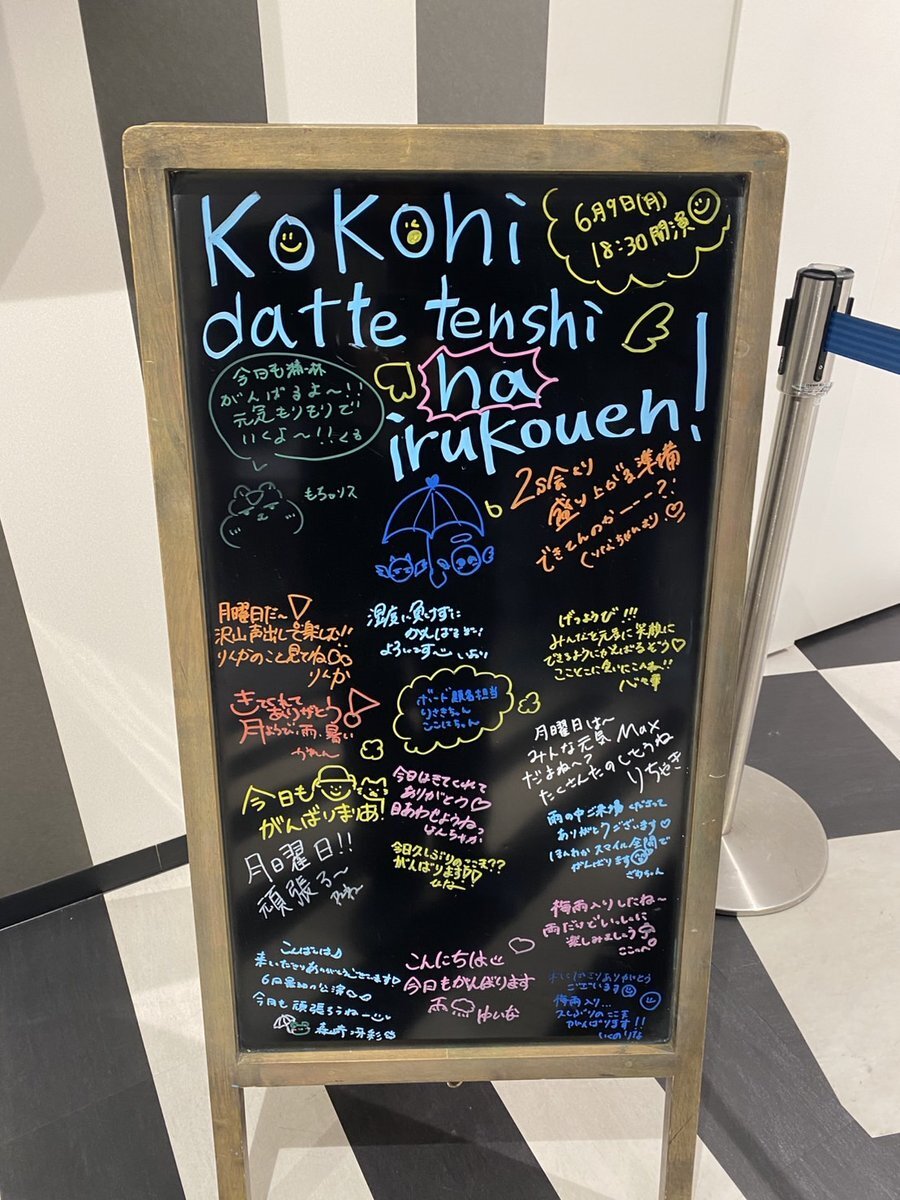 Kokohi
datte tenshi
ha
irukouen!
6月9日(月)
18:30開演
今日も
がんばるよ〜!!
元気もりもりで
いくよ〜!! くる
もちゃリス
盛り上がる準備
できてんのかーーー?!
月曜日だ〜
沢山声出して楽しむ!!
りくかのこと見てね
りくか
湿度に負けずに
がんばるぞ!
よろいで〜す いおり
げつようび!!!
みんなを元気に笑顔に
できるようにがんばるぞう♡
きてくれて
ありがとう
月ようび、雨、暑い
かれん
ボード顔名担当
りさきちゃん
ここにちゃん
月曜日は〜
みんな元気Max
だよね〜?
たくさんたのしもうね
りちゃき
今日も
がんばりまりあ!
今日はきてくれて
ありがとう♡
目あわせようね
月曜日!!
頑張る〜
今日久しぶりのここま??
がんばります♡♡
ひな
雨の中ご来場くださって
ありがとうございます♡
ほんわかスマイル全開で
がんばります
梅雨入りしたね〜
雨だけどいっしょに
楽しみましょう
こんばんは♪
来ていただきありがとうございます♡
6月最初の公演
今日も頑張ろうね〜
森﨑冴彩
こんにちは
今日もがんばります
雨 ゆいな
ありがとう
ございます
梅雨入り...
久しぶりのここま
がんばります!!
いくのりな